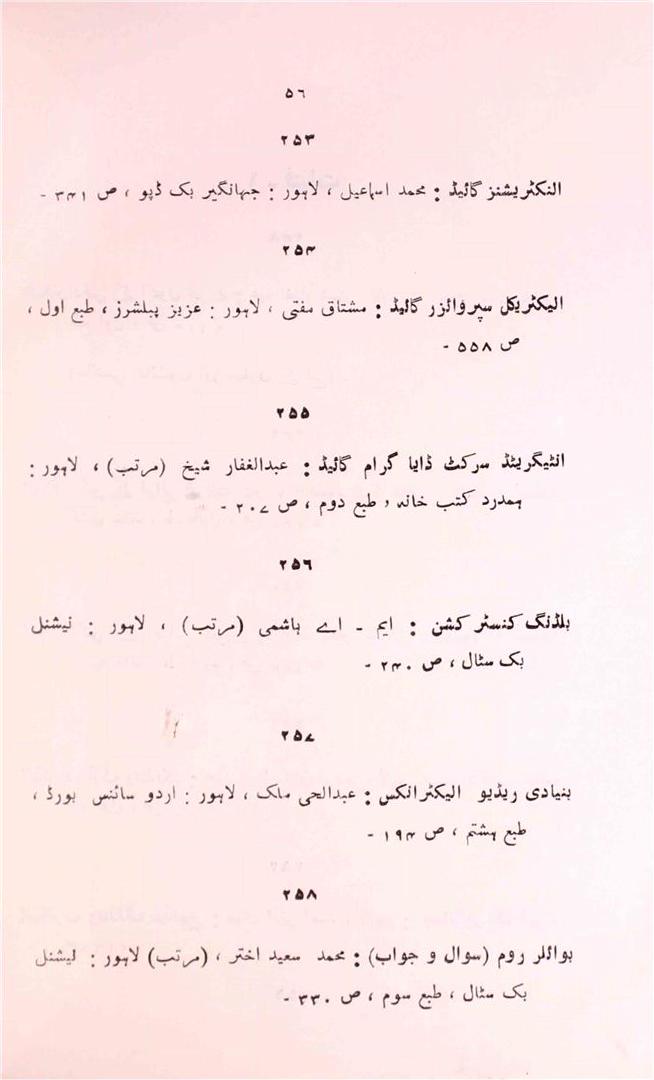 ۵۶
۲۵۳
الیکٹریشنز گائیڈ : محمد اسماعیل ، لاہور : جہانگیر بک ڈپو ، ص ۳۴۱ -
۲۵۴
الیکٹریکل سپروائزر گائیڈ : مشتاق مفتی ، لاہور : عزیز پبلشرز ، طبع اول ،
ص ۵۵۸ -
۲۵۵
انٹیگریٹڈ سرکٹ ڈایا گرام گائیڈ : عبدالغفار شیخ (مرتب) ، لاہور :
ہمدرد کتب خانہ ، طبع دوم ، ص ۲۰۷ -
۲۵۶
بلڈنگ کنسٹرکشن : ایم - اے ہاشمی (مرتب) ، لاہور : نیشنل
بک سٹال ، ص ۲۴۰ -
۲۵۷
بنیادی ریڈیو الیکٹرانکس : عبدالحی ملک ، لاہور : اردو سائنس بورڈ ،
طبع ہشتم ، ص ۱۹۴ -
۲۵۸
بوائلر روم (سوال و جواب) : محمد سعید اختر ، (مرتب) لاہور : نیشنل
بک سٹال ، طبع سوم ، ص ۳۳۰ -